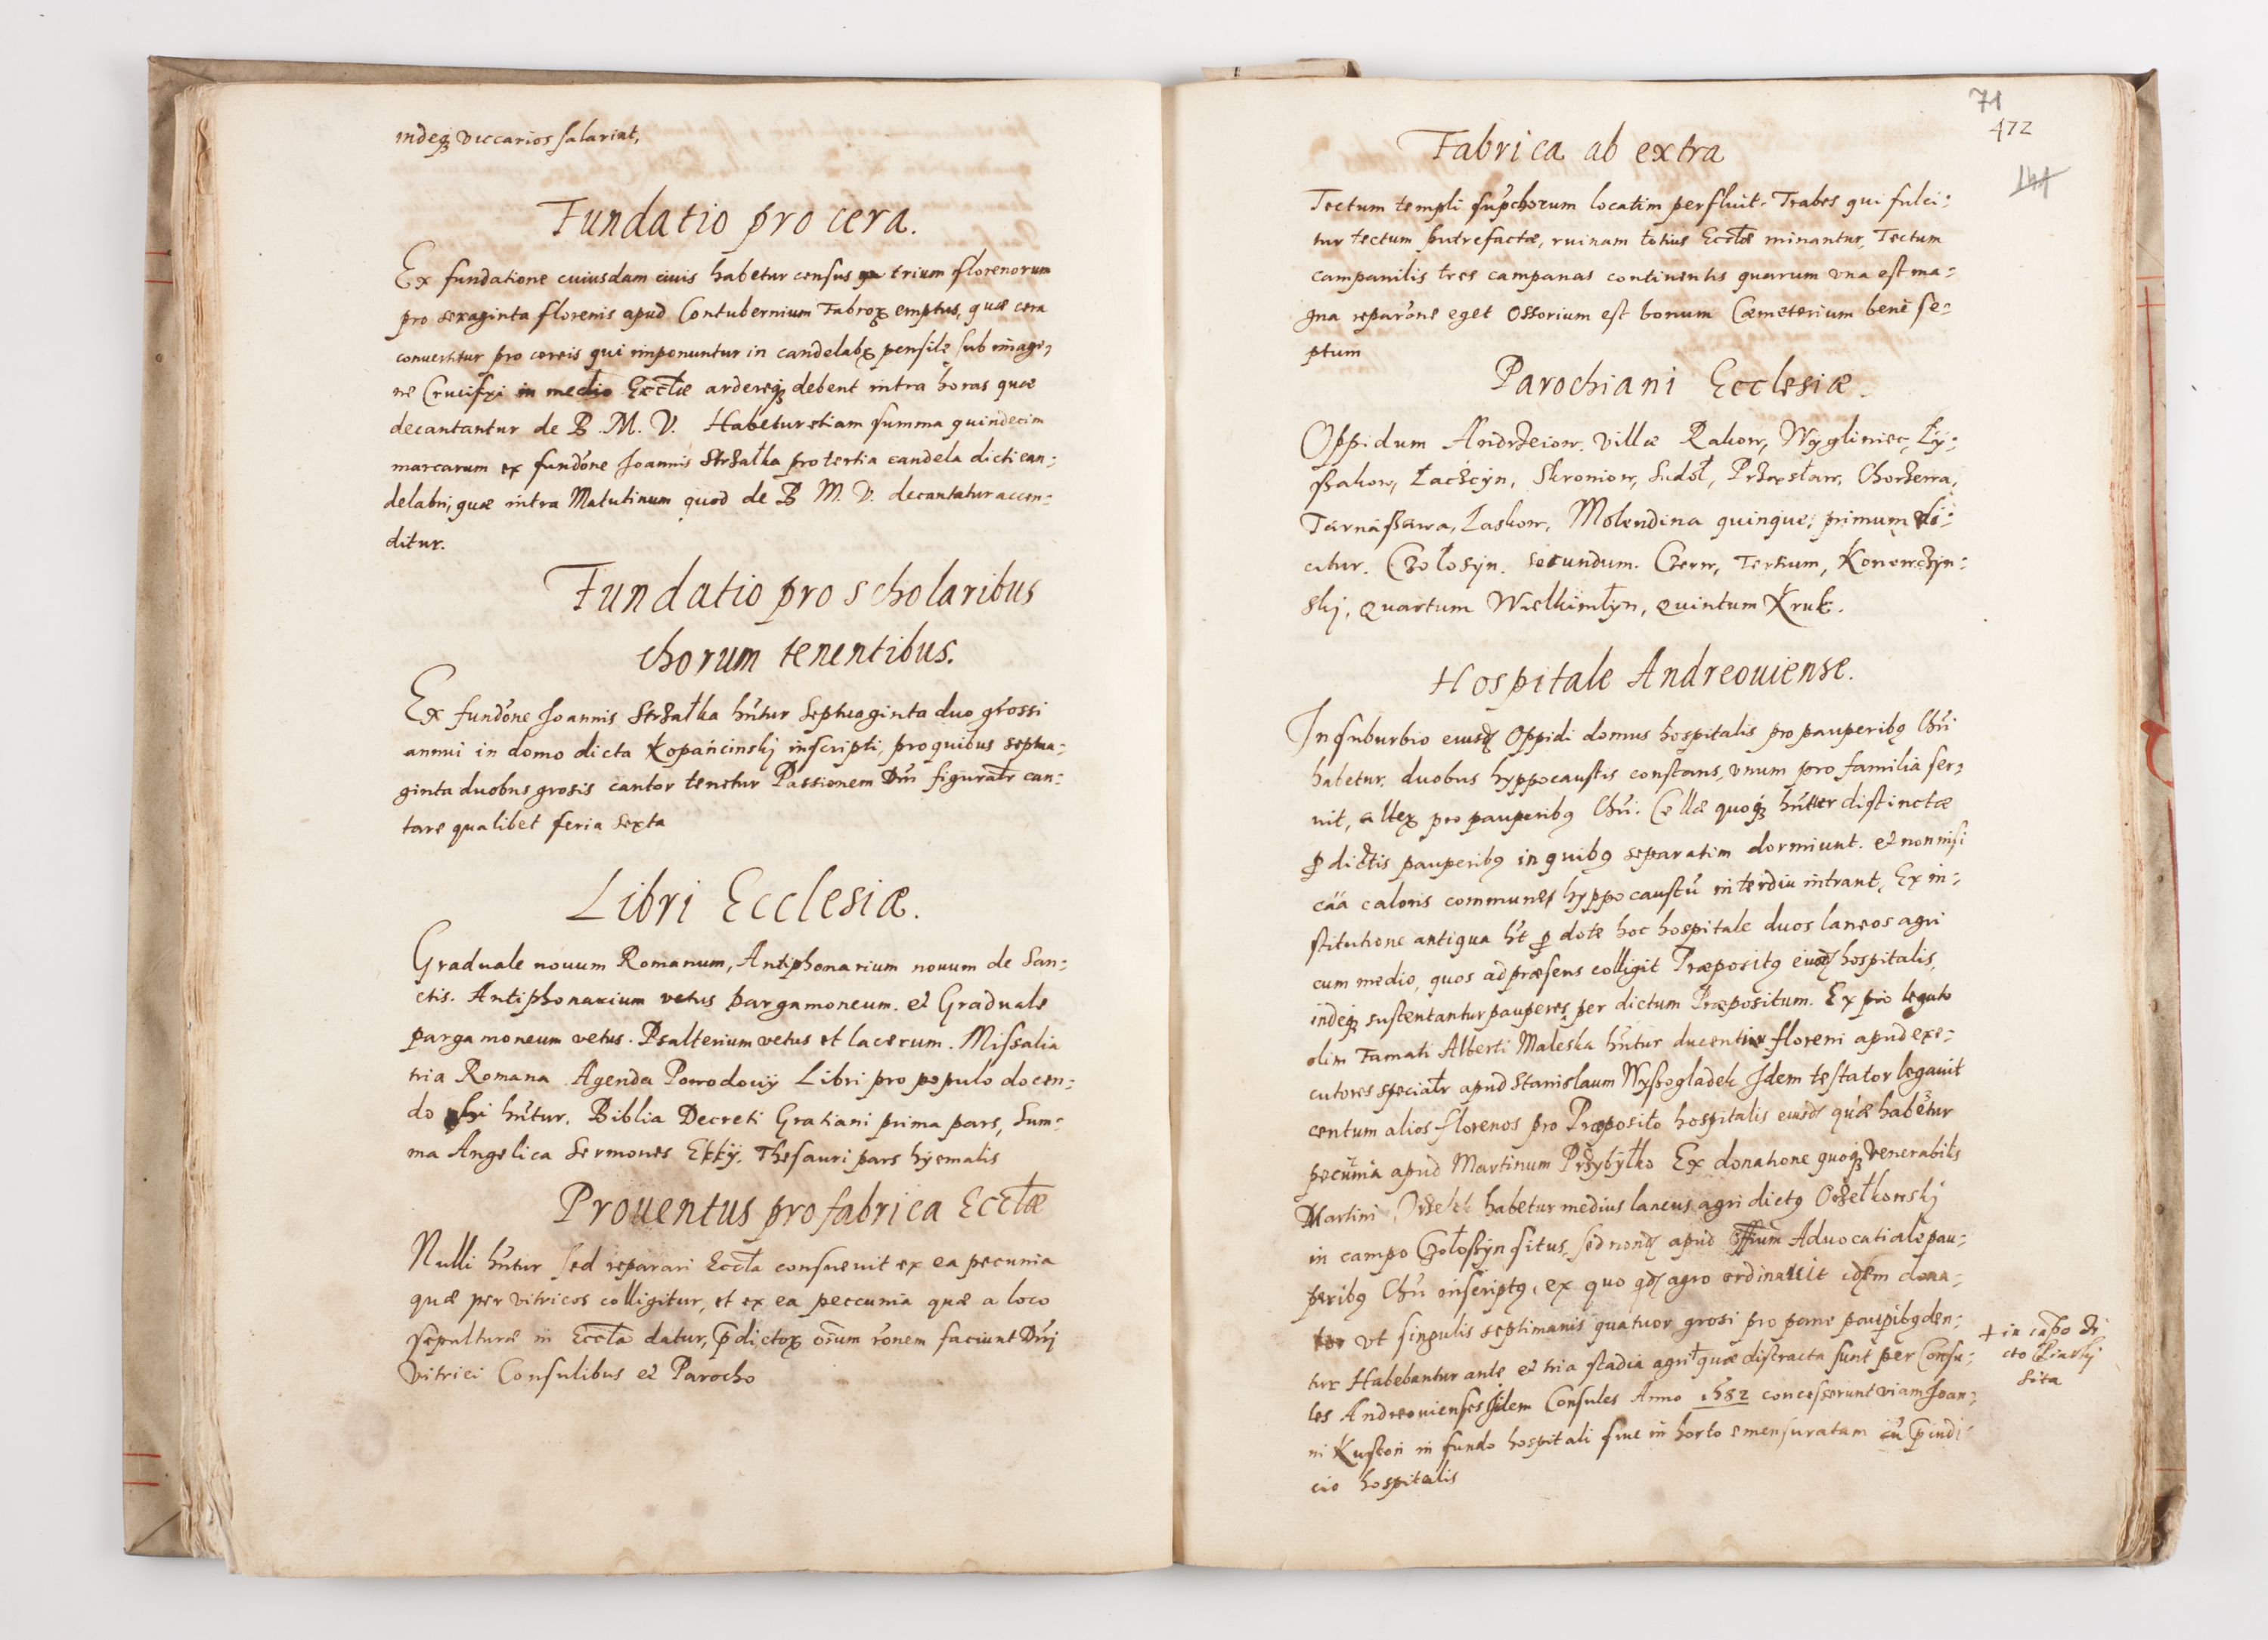 indeq₃ viccarios salariat,
Fundatio pro cera.
Ex fundatione cuiusdam ciuis habetur census trium florenorum
pro sexaginta florenis apud Contubernium Fabroꝝ emptus, quæ cera
conuertitur pro cereis qui imponuntur in candelabꝝ pensile sub imagi,
ne Crucifixi in medio Eccłæ ardereq₃ debent intra horas quæ
decantantur de B. M. V. Habetur etiam summa quindecim
marcarum ex fundõne Joannis Strzałka pro tertia candela dicti can:
delabri, quæ intra Matutinum quod de B M. V. decantatur accen:
ditur.
Fundatio pro scholaribus
chorum tenentibus.
Ex fundõne Joannis Strzałka hñtur septuaginta duo grossi
annui in domo dicta Kopańcinskj inscripti, pro quibus septua:
ginta duobus grosis cantor tenetur Passionem Dñi figuratr can:
tare qualibet feria sexta
Libri Ecclesiæ.
Graduale nouum Romanum, Antiphonarium nouum de San:
ctis. Antiphonarium vetus pargamoneum. et Graduale
pargamoneum vetus. Psalterium vetus et lacerum. Missalia
tria Romana Agenda Powodouij Libri pro populo docen:
do hñtur. Biblia Decreti Gratiani prima pars, Sum:
ma Angelica Sermones Ekkÿ. Thesauri pars hyemalis
Prouentus pro fabrica Eccłæ
Nulli hñtur sed reparari Eccła consueuit ex ea pecunia
quæ per vitricos colligitur, et ex ea peccunia quæ a loco
sepulturæ in Eccła datur, p̄dictoꝝ oĩum rõnem faciunt Dñj
vitrici Consulibus et Parocho
71
472
141
Fabrica ab extra
Tectum templi sup̃ chorum locatim perfluit. Trabes qui fulci:
tur tectum putrefactæ, ruinam totius Eccłæ minantur, Tectum
campanilis tres campanas continentis quarum vna est ma:
gna reparõne eget Ossorium est bonum Cæmeterium bene se:
ptum
Parochiani Ecclesiæ.
Oppidum Andrzeiow. villæ Rakow, Wygliniec, Ły:
ssakow, Łaczcyn, Skroniow, Sudół, Przexsław, Chorzewa,
Tarnássawa, Laskow, Molendina quinque; primum di:
citur. Czołosyn. secundum. Czern, Tertium, Konowczyn:
skj, Quartum Wielkimłyn, Quintum Kruk.
Hospitale Andreouiense.
In suburbio eiusdꝫ Oppidi domus hospitalis pro pauperibꝰ Chři
habetur. duobus hyppocaustis constans, vnum pro familia ser,
uit, alteꝝ pro pauperibꝰ Chři. Cellæ quoq₃ hñtur distinctæ
ꝓ dictis pauperibꝰ in quibꝰ separatim dormiunt. et non nisi
cãa caloris communes hyppocaustũ interdiu intrant, Ex in:
stitutione antiqua hẽt ꝓ dote hoc hospitale duos laneos agri
cum medio, quos ad præsens colligit Præpositꝰ eiusdꝫ hospitalis,
indeq₃ sustentantur pauperes per dictum Præpositum. Ex pio legato
olim Famati Alberti Maleska hñtur ducenti floreni apud exe:
cutores speciatr apud Stanislaum Wyssogladek Idem testator legauit
centum alios florenos pro Præposito hospitalis eiusdꝫ quæ habẽtur
pecunia apud Martinum Przybyłko Ex donatione quoq₃ venerabilis
Martini Orzełek habetur medius laneus agri dictꝰ Orzełkowskj
in campo Czołossyn situs, sed nondꝫ apud Offium Aduocatiale pau:
peribꝰ Chři inscriptꝰ, ex quo qdꝫ agro ordinauit idem dona:
tor vt singulis septimanis quatuor grosi pro pane paupibꝰ den:
tur Habebantur ante et tria stadia agri + quæ distracta sunt per Consu:
les Andreouienses Jidem Consules Anno 1582 concesserunt viam Joan:
ni Kuston in fundo hospitali siue in horto emensuratam cũ p̄iudi
cio hospitalis
+ in cãpo di
cto
sita